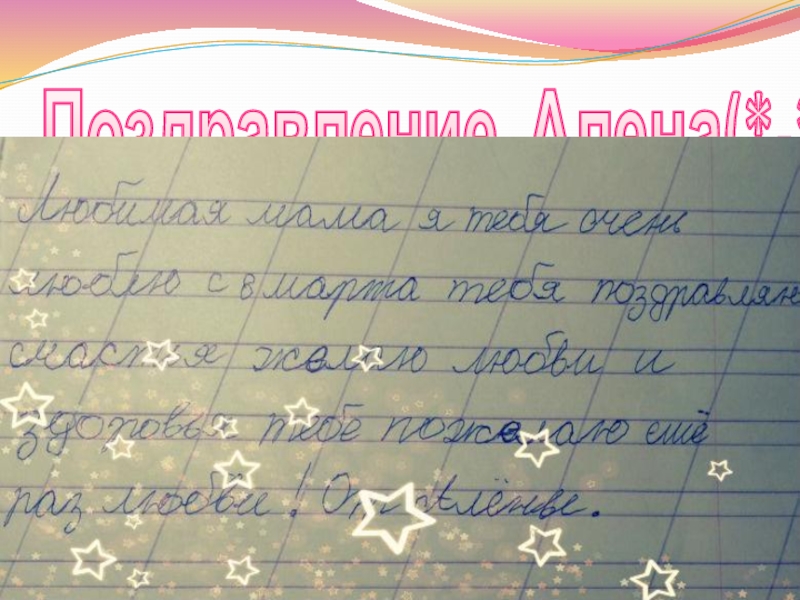 Поздравление Алена(*-*
Любимая мама я тебя очень
люблю с 8 марта тебя поздравляю
счастья желаю любви и
здоровья тебе пожелаю ещё
раз любви! От Алёнки.